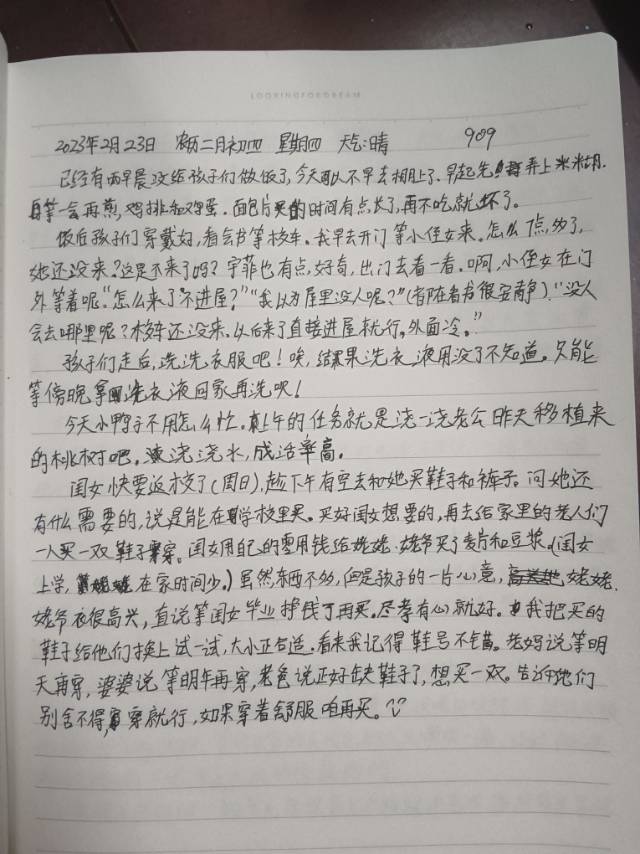 LOOKINGFORDREAM
2023年2月23日 农历二月初四 星期四 天气:晴 909
已经有两早晨没给孩子们做饭了,今天可以不早去棚上了.早起先弄上米糊.
再等一会再煎,鸡排和鸡蛋.面包片买的时间有点长了,再不吃就坏了。
饭后孩子们穿戴好,看会书等校车.我早去开门等小侄女来.怎么7点多了,
她还没来?这是不来了吗?宇菲也有点好奇,出门去看一看.啊,小侄女在门
外等着呢."怎么来了不进屋?""我以为屋里没人呢?"(都在看书很安静)."没人
会去哪里呢?校车还没来.以后来了直接进屋就行,外面冷。"
孩子们走后,洗洗衣服吧!唉,结果洗衣液用没了不知道,只能
等傍晚拿洗衣液回家再洗呗!
今天小鸭子不用怎么忙.上午的任务就是浇一浇老公昨天移植来
的桃树吧.浇浇水,成活率高.
闺女快要返校了(周日),趁下午有空去和她买鞋子和裤子.问她还
有什么需要的,说是能在学校里买.买好闺女想要的,再去给家里的老人们
一人买一双鞋子穿.闺女用自己的零用钱给姥姥.姥爷买了麦片和豆浆.(闺女
上学,在家时间少.)虽然东西不多,但是孩子的一片心意,姥姥.
姥爷很高兴,直说等闺女毕业挣钱了再买.尽孝有心就好.我把买的
鞋子给他们换上试一试,大小正合适.看来我记得鞋号不错.老妈说等明
天再穿,婆婆说等明年再穿,老爸说正好缺鞋子了,想买一双.告诉他们
别舍不得,穿就行,如果穿着舒服咱再买。